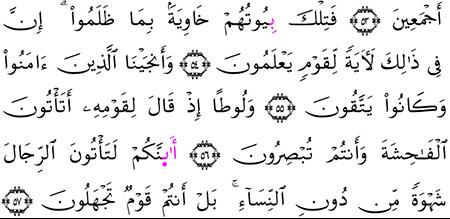 أَجْمَعِينَ ٥٣ فَتِلْكَ بِيُوتُهُمْ خَاوِيَةًۢ بِمَا ظَلَمُوٓا۟ ۗ إِنَّ
فِى ذَٰلِكَ لَأَيَةً لِّقَوْمٍ يَعْلَمُونَ ٥٤ وَأَنجَيْنَا ٱلَّذِينَ ءَامَنُوا۟
وَكَانُوا۟ يَتَّقُونَ ٥٥ وَلُوطًا إِذْ قَالَ لِقَوْمِهِۦ أَتَأْتُونَ
ٱلْفَٰحِشَةَ وَأَنتُمْ تُبْصِرُونَ ٥٦ أَا۬ينَّكُمْ لَتَأْتُونَ ٱلرِّجَالَ
شَهْوَةً مِّن دُونِ ٱلنِّسَآءِ ۚ بَلْ أَنتُمْ قَوْمٌ تَجْهَلُونَ ٥٧